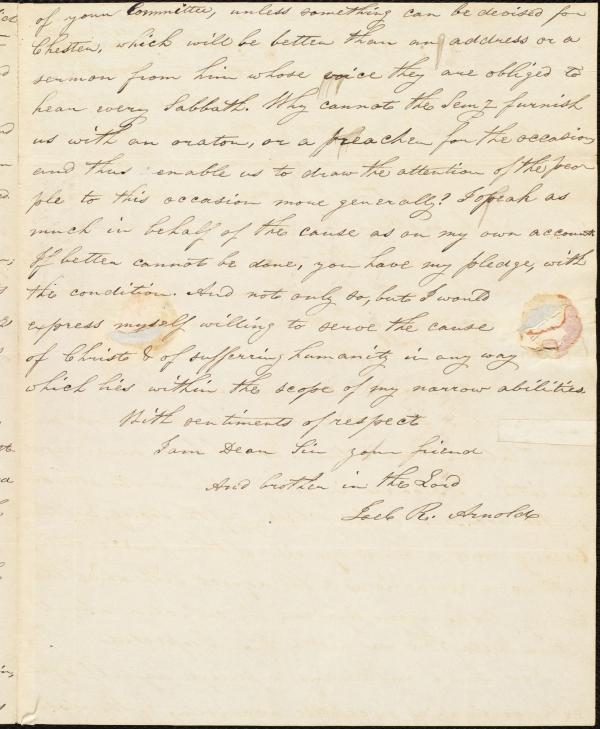 of your Committee, unless something can be devised for
Chester, which will be better than an address or a
sermon from him whose voice they are obliged to
hear every Sabbath. Why cannot the Semy furnish
us with an orator, or a preacher for the occasion
and thus enable us to draw the attention of the peo
ple to this occasion more generally? I speak as
much in behalf of the cause as on my own account.
If better cannot be done, you have my pledge, with
the condition. And not only so, but I would
express myself willing to serve the cause
of Christ & of suffering humanity in any way
which lies within the scope of my narrow abilities
With sentiments of respect
I am Dear Sir your friend
And brother in the Lord
Joel R. Arnold